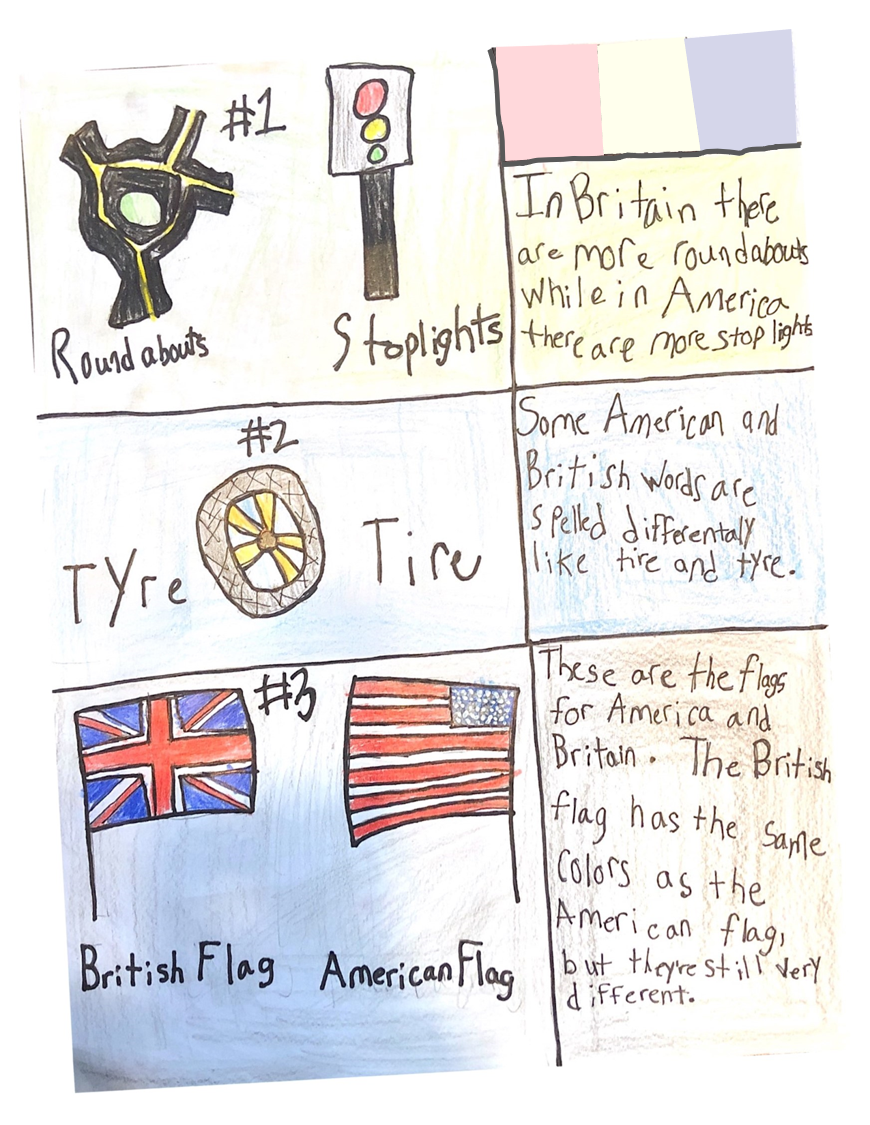 #1
Roundabouts
Stoplights
In Britain there
are more roundabouts
while in America
there are more stop lights
#2
Tyre
Tire
Some American and
British words are
spelled differentaly
like tire and tyre.
#3
British Flag
American Flag
These are the flags
for America and
Britain. The British
flag has the same
colors as the
American flag,
but they're still very
different.